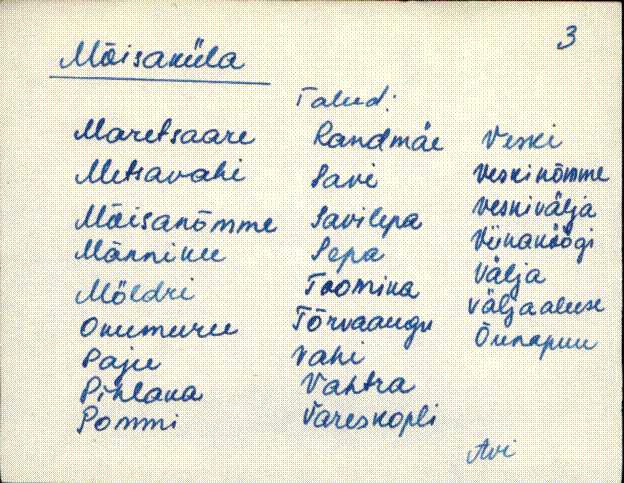 3
Mõisaküla
Talud:
Maretsaare
Metsavahi
Mõisanõmme
Männiku
Möldri
Orumuru
Paju
Pihlaka
Pommi
Randmäe
Savi
Savilepa
Sepa
Toomika
Tõrvaaugu
Vahi
Vahtra
Vareskopli
Veski
Veskinõmme
Veskivälja
Viinaköögi
Välja
Väljaaluse
Õunapuu
Avi